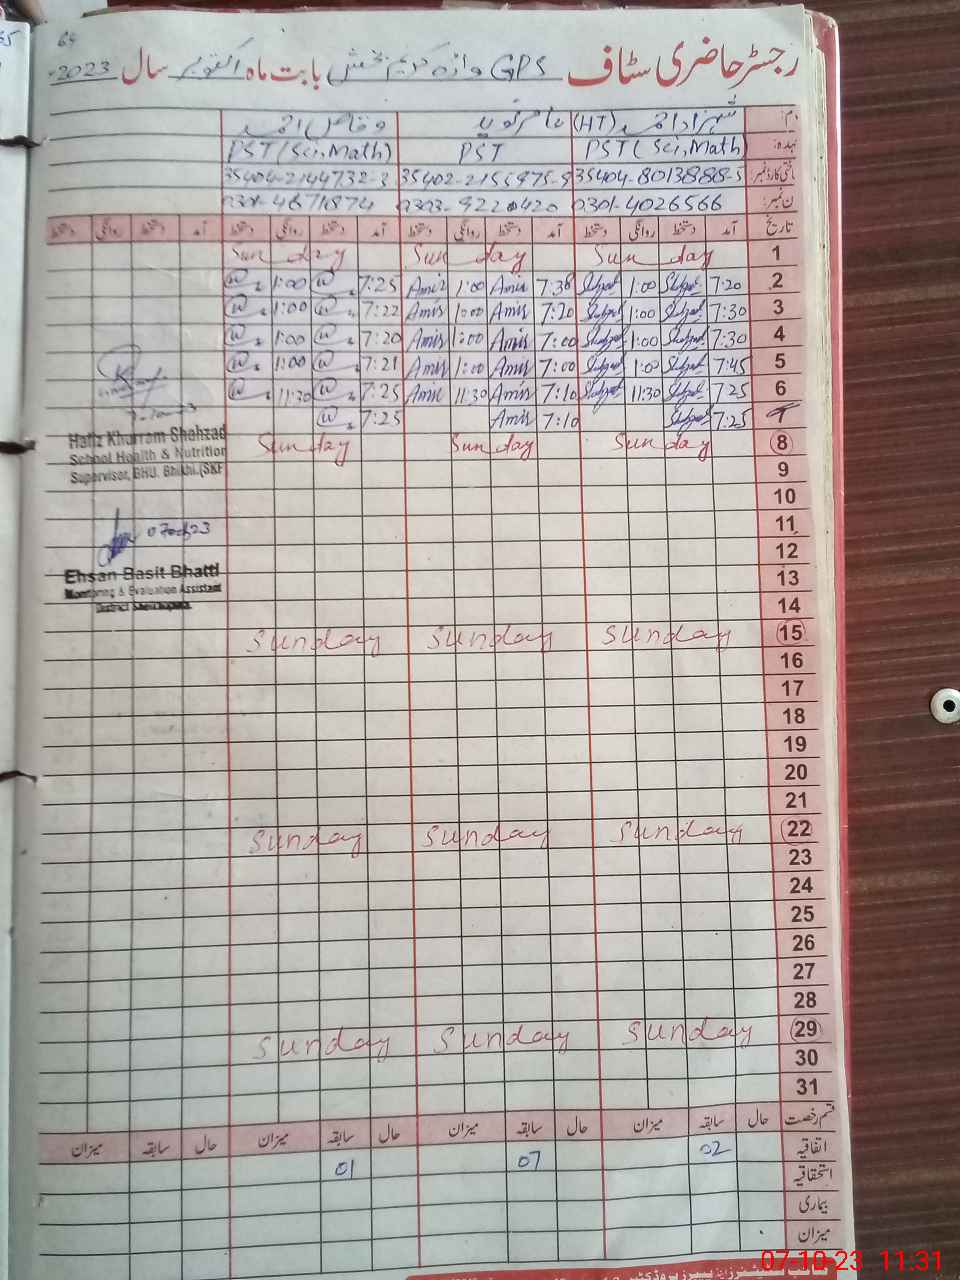 65
رجسٹر حاضری سٹاف GPS واڑہ کریم بخش بابت ماہ اکتوبر سال 2023
شہزاد احمد (HT) عامر نوید وقاص احمد
عہدہ: PST (Sci, Math) PST PST (Sci, Math)
شناختی کارڈ نمبر: 35404-8013888-5 35404-2144732-3
فون نمبر: 0301-4026566 0303-9220420
تاریخ آمد دستخط روانگی دستخط آمد دستخط روانگی دستخط آمد دستخط روانگی دستخط آمد دستخط روانگی دستخط
1 Sunday Sunday Sunday
2 7:20 1:00 7:38 Amir 1:00 Amir 7:25 1:00
3 7:30 1:00 Amir 1:00 Amir 7:22 1:00
4 7:30 1:00 7:00 Amir 1:00 Amir 7:20 1:00
5 7:45 1:00 7:00 Amir 1:00 Amir 7:21 1:00
6 7:25 11:30 7:10 Amir 11:30 Amir 7:25 11:30
7 7:25 7:10 Amir 7:25
8 Sunday Sunday Sunday
Hafiz Khurram Shahzad
School Health & Nutrition
Supervisor, BHU. Bhikhi.(SKP
9
10
11
07oct23
12
Ehsan Basit Bhatti
Monitoring & Evaluation Assistant
District Sheikhupura
13
14
15 Sunday Sunday Sunday
16
17
18
19
20
21
22 Sunday Sunday Sunday
23
24
25
26
27
28
29 Sunday Sunday Sunday
30
31
قسم رخصت حال سابقہ میزان حال سابقہ میزان حال سابقہ میزان حال سابقہ میزان
اتفاقیہ 02 07 01
استحقاقیہ
بیماری
میزان
07-10-23 11:31